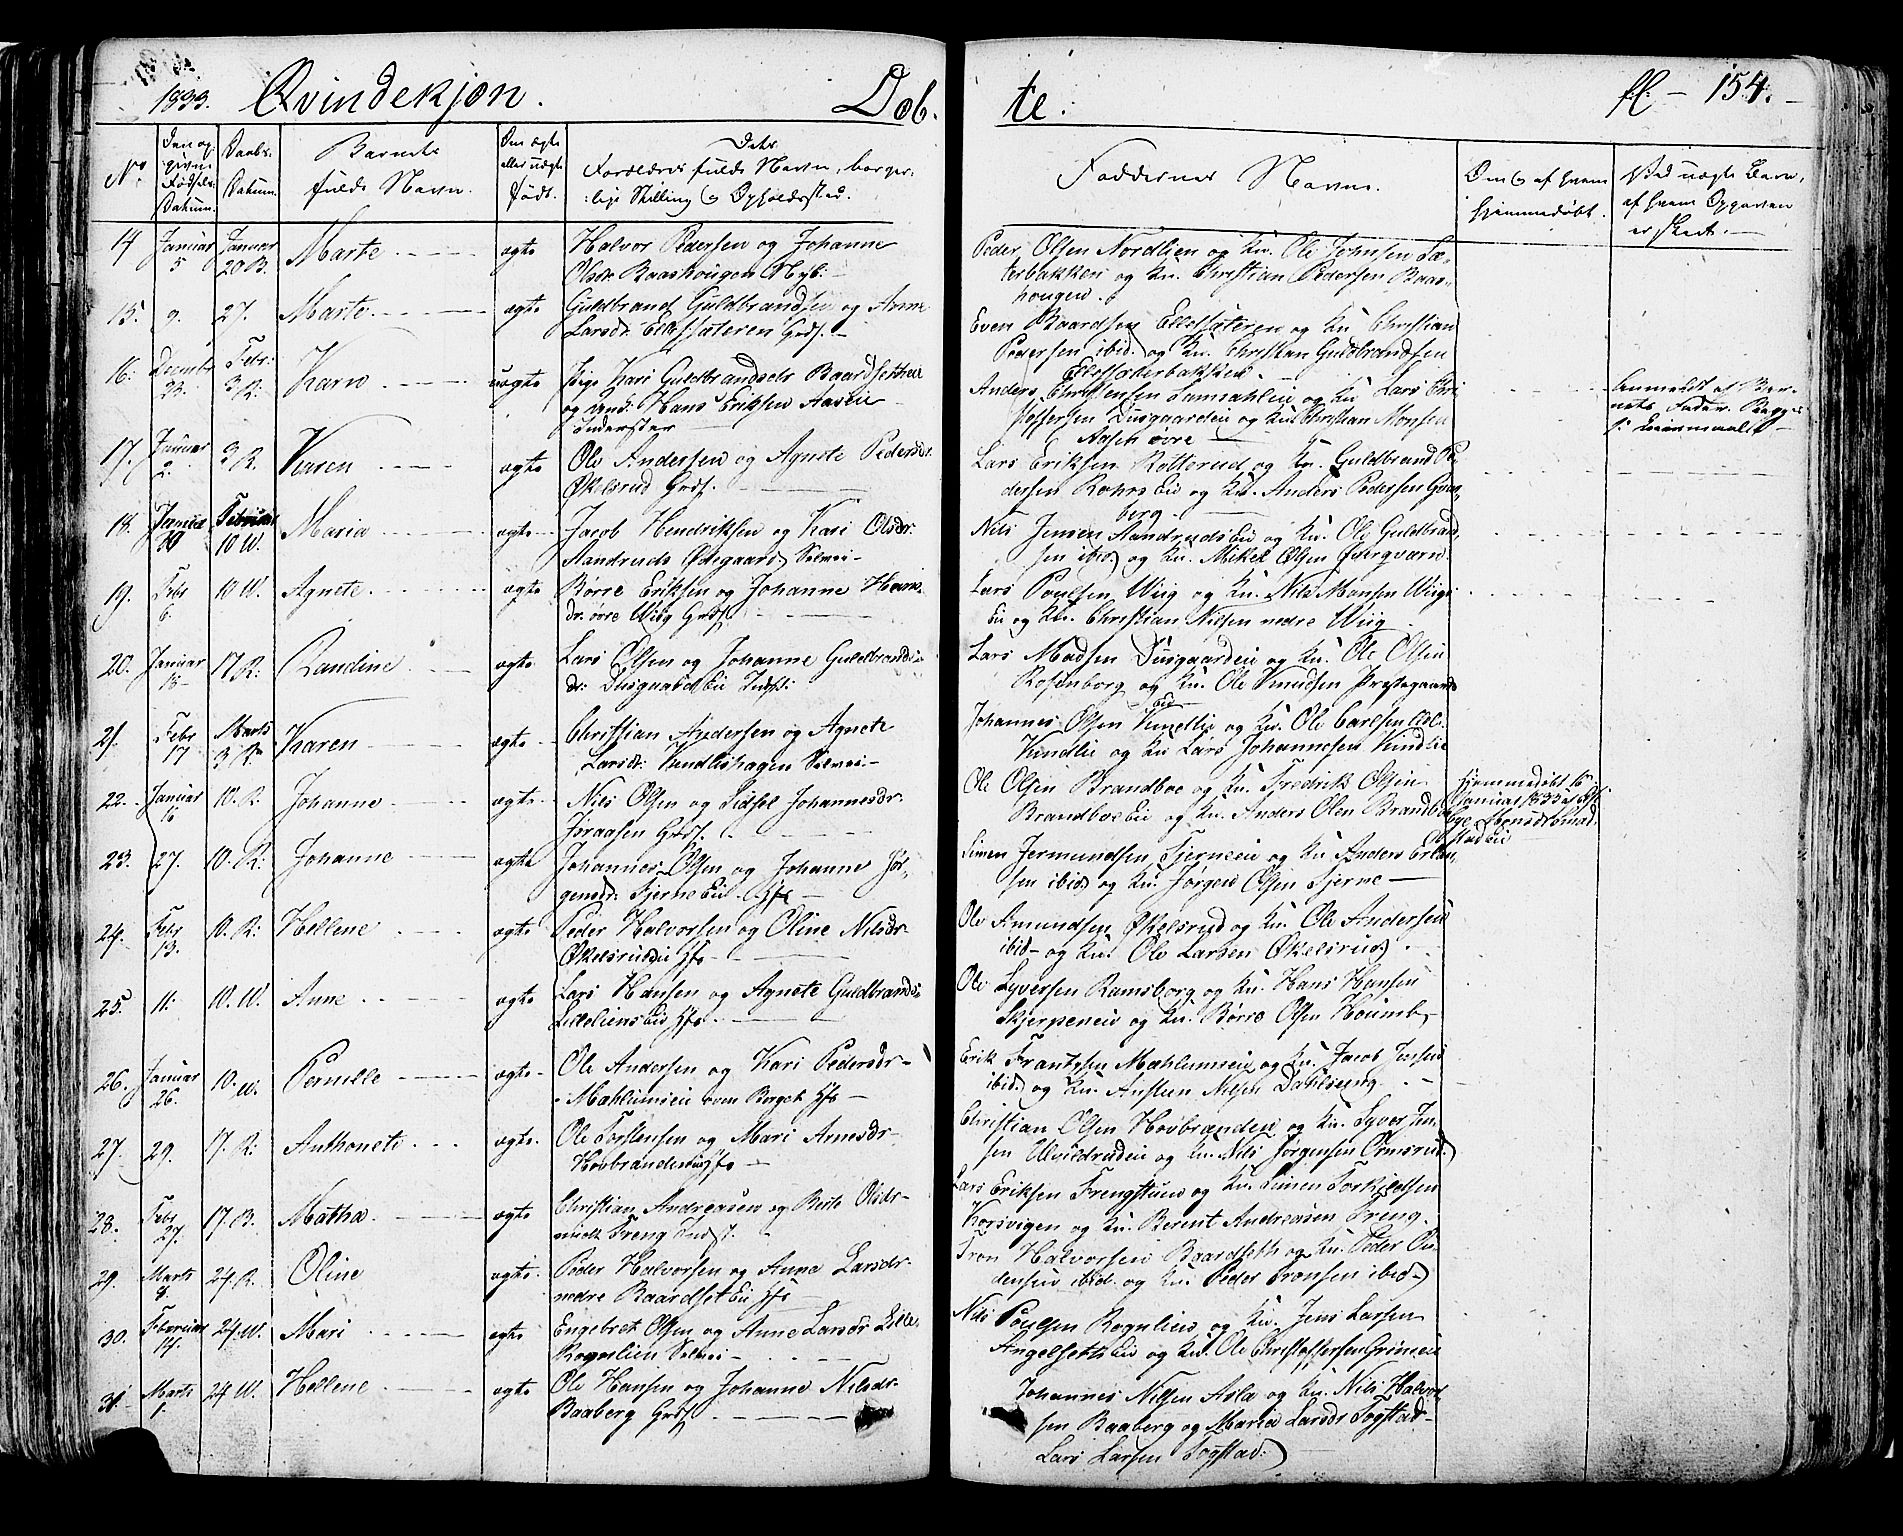 1833. Qvindekjøn. Døb- te. fl. - 154.
No
Den op-
givne
Fødsels-
Datum.
Daabs-
Datum.
Barnets
fulde Navn.
Om ægte
eller uægte
født.
Dets
Forældres fulde Navn, borger-
lige Stilling og Opholdssted.
Faddernes Navne.
Om og af hvem
hjemmedøbt.
Ved uægte Børn,
af hvem Opgaven
er skeet.
14 Januar 5 Januar 20 B. Marte ægte Halvor Pedersen og Johanne
Olsdr. Baashougen
Peder Olsen Nordlien og Ku. Ole Johnsen Sæ-
terbakken og Ku. Christian Pedersen Baas-
hougen.
15. 9. 27. Marte ægte Guldbrand Guldbrandsen og Anne
Larsdr. Grds.
Even Baardsen og Ku. Christian
Pedersen ibid. og Ku. Christian Guldbrandsen
16. Decembr 23. Febr: 3. R. Karn uægte Pige Kari Guldbrandsdr Baardsetheie
og Hans Eriksen Aaseie
Inderster
Anders Christensen og Ku Lars Chri
stoffersen og Ku. Christian Monsen
øvre
Anmeldt af Bar-
nets Fader. Begges
17. Januar 2. 3 R. Karen ægte Ole Andersen og Agnete Pedersdr.
Økelsrud Grds.
Lars Eriksen Rotterud og Ku. Guldbrand Pe-
dersen Eie og Ku. Anders Pedersen
berg
18. Januar Februar 10 W. Maria ægte Jacob Hendriksen og Kari Olsdr.
Aandruds Ødegaard Selvei
Nils Jensen Aandruds Eie og Ku. Ole Guldbrand-
sen ibid. og Ku. Mikel Olsen
19. Febr 6. 10 W. Agnete ægte Børre Eriksen og Johanne Hans
dr. øvre Wiig Grds.
Lars Poulsen Wiig og Ku. Nils Hansen Wiigs
Eie og Ku. Christian Nilsen nedre Wiig
20. Januar 17 R: Randine ægte Lars Olsen og Johanne Guldbrands-
dr. Eie Indst:
Lars Madsen og Ku. Ole Olsen
Rosenborg og Ku. Ole Knudsen Præstegaards
eie
21. Febr 17 Marts 3 R. Karen ægte Christian Andersen og Agnete
Larsdr: Kindlishagen Selvei
Johannes Olsen Kindlie og Ku. Ole Carlsen
Kindlie og Ku Lars Johannesen Kindlie
22. Januar 16 10. R: Johanne ægte Nils Olsen og Sidsel Johannesdr.
Grds.
Ole Olsen Brandboe og Ku. Fredrik Olsen
Brandboe Eie og Ku. Anders Olen Brandboe
Hjemmedøbt 16
Januar 1833 af
23. 27. 10. R: Johanne ægte Johannes Olsen og Johanne Jør-
gensdr. Stjerne Eie Hfs
Simen Jermundsen Stjerneeie og Ku. Anders
sen ibid. og Ku. Jørgen Olsen Stjerne
24. Febr 13. 10. R: Hellene ægte Peder Halvorsen og Oline Nilsdr
Økelsrudeie Hfs
Ole Amundsen Økelsrud og Ku. Ole Andersen
ibid- og Ku. Ole Larsen Økelsrud
25. 11. 10. W. Anne ægte Lars Hansen og Agnete Guldbrands-
Eie Hfs.
Ole Syversen Ramsborg og Ku. Hans Hansen
og Ku. Børre Olsen
26. Januar 26. 10. W. Pernille ægte Ole Andersen og Kari Pedersdr
Mæhlumseie oven Berget Hfs
Erik Frantzsen Mæhlumseie og Ku. Jacob Jensen
ibid. og Ku. Austen Nilsen
27. 29. 17. R: Anthonete ægte Ole Torstensen og Mari Arnesdr
Hovbranden Hfs
Christian Olsen Hovbranden og Ku. Syver Jen-
sen og Ku. Nils Jørgensen Ormsrud.
28. Febr 27. 17. B. Mathea ægte Christian Andreasen og Berte Olsdr
Freng Indst.
Lars Eriksen og Ku. Simen Torkildsen
Korsvigen og Ku. Berent Andreasen Freng.
29. Marts 8. 24. R. Oline ægte Peder Halvorsen og Anne Larsdr
nedre Baardset Eie Hfs
Tron Halvorsen Baardseth og Ku. Peder Pe-
dersen ibid. og Ku. Peder Tronsen ibid.
30. Februar 14. 24. W. Mari ægte Engebret Olsen og Anne Larsdr Lille-
Rognlien Selvei
Nils Poulsen Rognlien og Ku. Jens Larsen
Angelseth Eie og Ku. Ole Christoffersen
31 Marts 1. 24 W. Hellene ægte Ole Hansen og Johanne Nilsdr.
Baaberg Grds.
Johannes Nilsen Asla og Ku. Nils Halvor
sen Baaberg og Maria Larsdr Togstad
Lars Larsen Togstad.